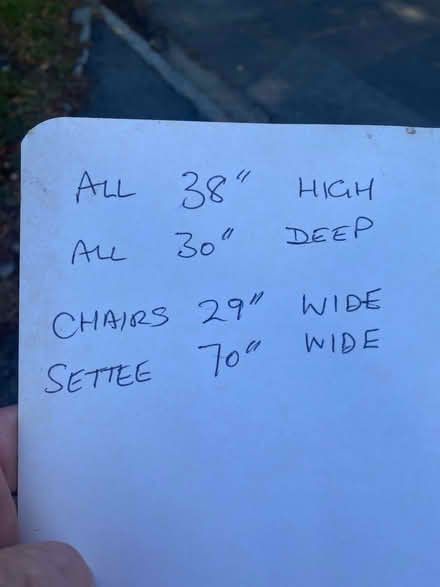 ALL 38" HIGH
ALL 30" DEEP
CHAIRS 29" WIDE
SETTEE 70" WIDE